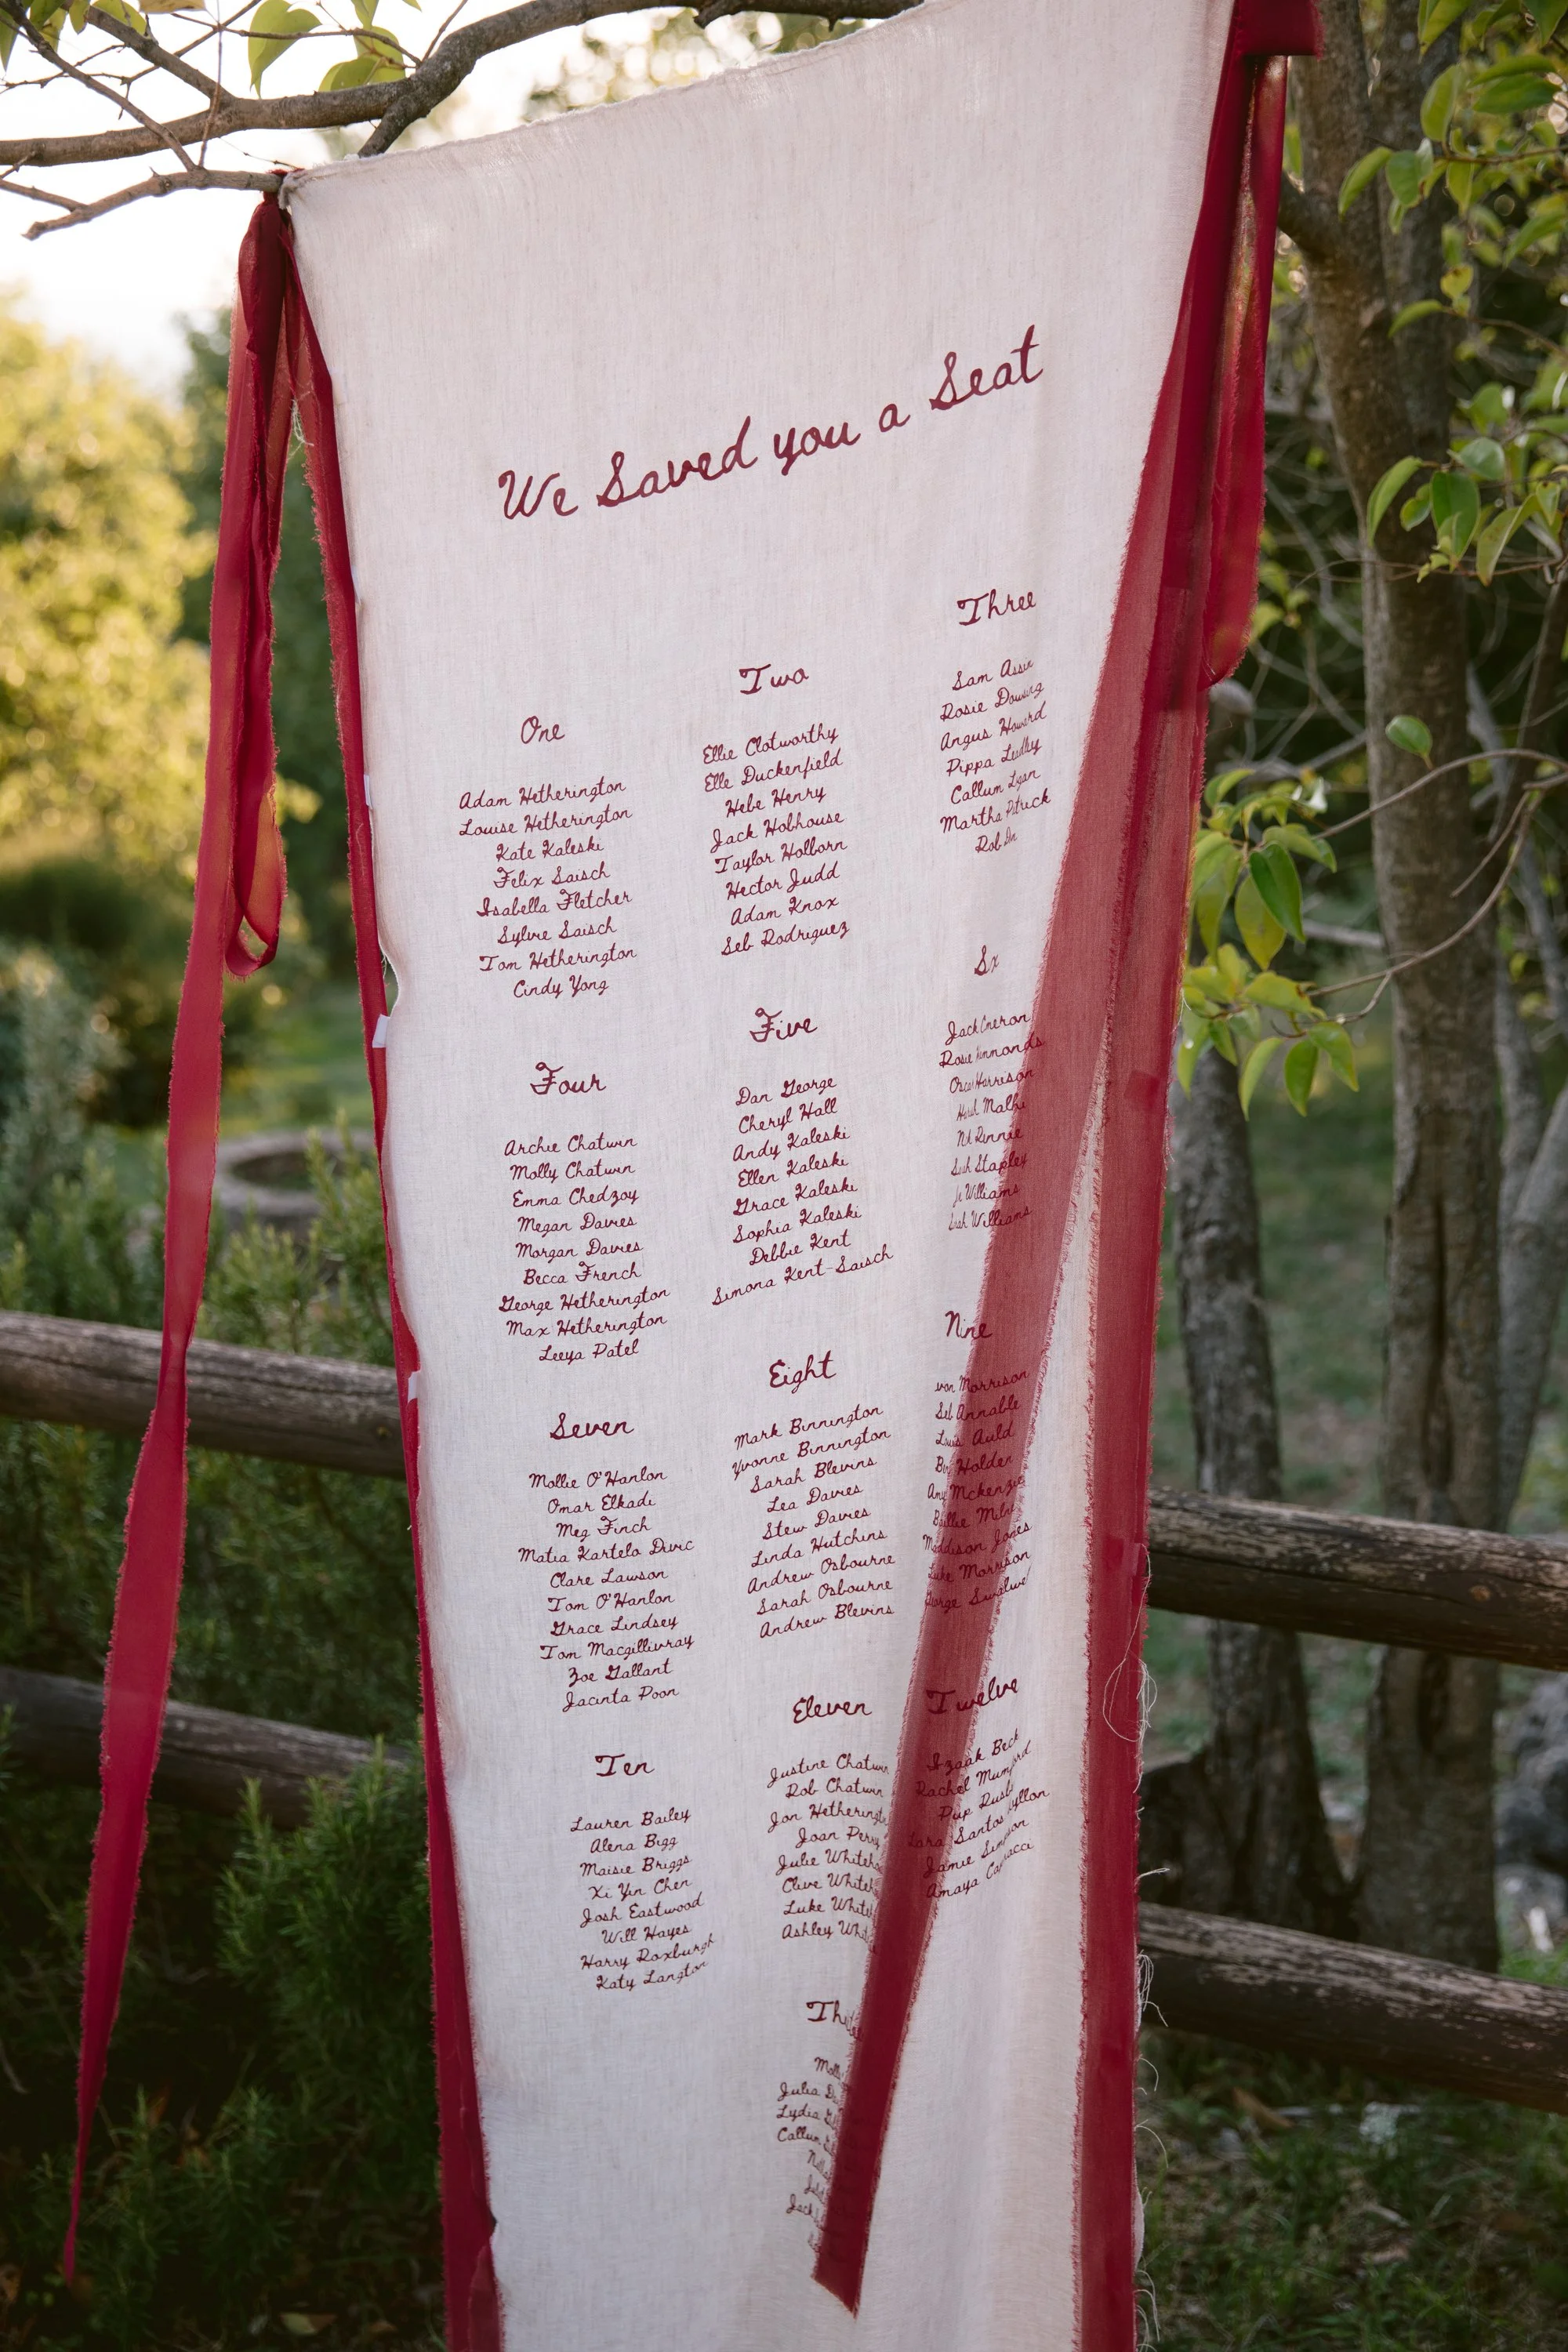 We Saved you a Seat
One
Adam Hetherington
Louise Hetherington
Kate Kaleski
Felix Saisch
Isabella Fletcher
Sylvie Saisch
Tom Hetherington
Cindy Yong
Two
Ellie Clotworthy
Elle Duckenfield
Hebe Henry
Jack Hobhouse
Taylor Holborn
Hector Judd
Adam Knox
Seb Rodriguez
Three
Sam
Rosie
Angus Howard
Pippa
Callum
Martha
Rob
Four
Archie Chatwin
Molly Chatwin
Emma Chedzoy
Megan Davies
Morgan Davies
Becca French
George Hetherington
Max Hetherington
Leeya Patel
Five
Dan George
Cheryl Hall
Andy Kaleski
Ellen Kaleski
Grace Kaleski
Sophia Kaleski
Debbie Kent
Simona Kent-Saisch
Six
Jack
Rosie
Harrison
Rennie
Stapley
Williams
Williams
Seven
Mollie O'Hanlon
Omar Elkadi
Meg Finch
Matia Kartelo Divic
Clare Lawson
Tom O'Hanlon
Grace Lindsey
Tom Macgillivray
Zoe Gallant
Jacinta Poon
Eight
Mark Binnington
Yvonne Binnington
Sarah Blevins
Lea Davies
Stew Davies
Linda Hutchins
Andrew Osbourne
Sarah Osbourne
Andrew Blevins
Nine
Morrison
Seb Annable
Auld
Holden
Mckenzie
Maddison Jones
Luke Morrison
George
Ten
Lauren Bailey
Alena Bigg
Maisie Briggs
Xi Yin Chen
Josh Eastwood
Will Hayes
Harry Roxburgh
Katy Langton
Eleven
Justine Chatwin
Rob Chatwin
Jon
Joan Perry
Julie
Clive
Luke
Ashley
Twelve
Izaak Beck
Rachel
Pup
Lara Santos
Jamie
Amaya
Julia
Lydia